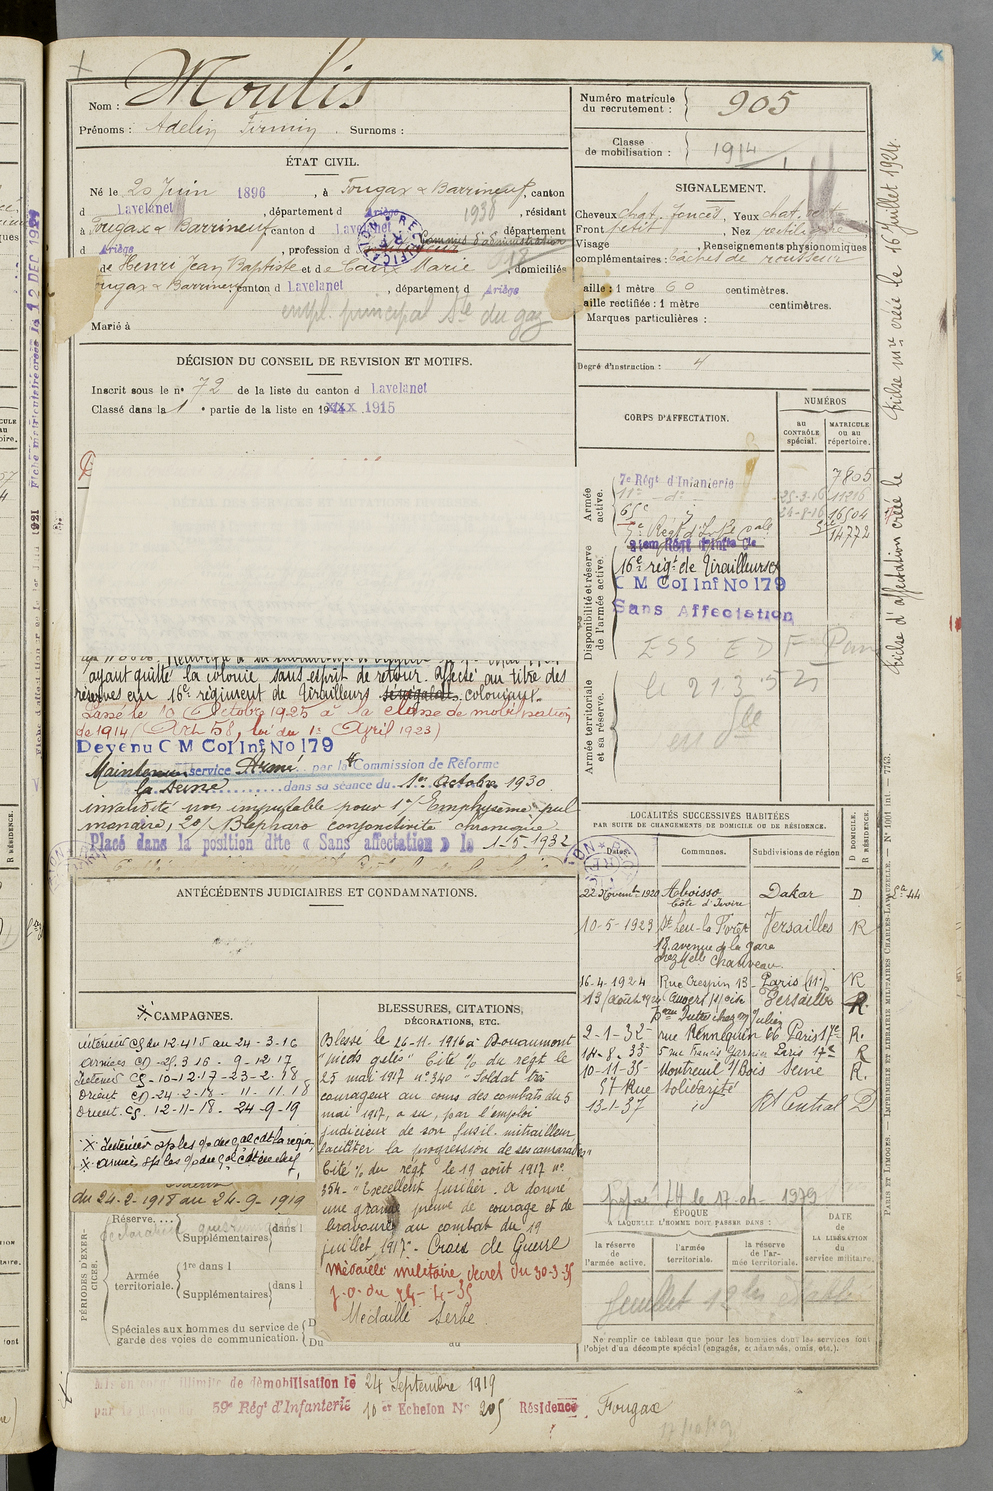 Nom : Moulis
Prénoms : Adelin Firmin . Surnoms :
Numéro matricule
du recrutement : 905
Classe
de mobilisation : 1914
ÉTAT CIVIL.
Né le 20 Juin 1896 , à Fougax & Barrineuf, canton
d Lavelanet , département d Ariège 1938 , résidant
à Fougax & Barrineuf canton d Lavelanet département
d Ariège , profession d Commis d'administration
de Henri Jean Baptiste et de Caux Marie , domiciliés
Fougax & Barrineuf canton d Lavelanet , département d Ariège
empl. principal Sté du gaz
Marié à
SIGNALEMENT.
Cheveux chat. foncés, Yeux chat. vert
Front petit , Nez rectiligne
Visage , Renseignements physionomiques
complémentaires : tâches de rousseur
aille : 1 mètre 60 centimètres.
aille rectifiée : 1 mètre centimètres.
Marques particulières :
Degré d'instruction : 4
DÉCISION DU CONSEIL DE REVISION ET MOTIFS.
Inscrit sous le nº 72 de la liste du canton d Lavelanet
Classé dans la 1 e partie de la liste en 19xxx 1915
ayant quitté la colonie sans esprit de retour. Affecté au titre des
réserves au 16e régiment de Tirailleurs sénégalais coloniaux.
Passé le 10 Octobre 1925 à la classe de mobilisation
de 1914 (Art 58, loi du 1er Avril 1923)
Devenu C M Col Inf No 179
Maintenu service Armé par la Commission de Réforme
la Seine dans sa séance du 1er Octobre 1930
invalidité non imputable pour 1º/ Emphysème pul
monaire, 2º/ Blépharo conjonctivite chronique.
Placé dans la position dite « Sans affectation » le 1-5-1932
CORPS D'AFFECTATION.
NUMÉROS
AU
CONTRÔLE
spécial.
MATRICULE
OU AU
répertoire.
Armée
active.
7e Régt d'Infanterie 7805
11e - d° - 25-3-16 11216
65e 24-8-16 16504
5e Régt d'Inf. Cole 14772
Disponibilité et réserve
de l'armée active.
16e régt de Tirailleurs
C M Col Inf No 179
Sans Affectation
ESS EDF Paris
le 21.3.52
Armée territoriale
et sa réserve.
ANTÉCÉDENTS JUDICIAIRES ET CONDAMNATIONS.
LOCALITÉS SUCCESSIVES HABITÉES
PAR SUITE DE CHANGEMENTS DE DOMICILE OU DE RÉSIDENCE.
Dates. Communes. Subdivisions de région D DOMICILE. R RÉSIDENCE.
22 Novembt 1920 Aboisso Dakar D
Côte d'Ivoire
10-5-1923 St Leu-la Forêt Versailles R
18 avenue de la gare
chez Melle Chauveau
16-4-1924 Rue Crespin 13 - Paris (11e) R
13 Août 1924 Versailles R.
2-1-32 rue Rennequin 66 Paris 17e R.
14-8-33 5 rue Francis Garnier Paris 17e R
10-11-35 Montreuil s/Bois Seine R.
57 Rue Solidarité
13-1-37 id Rt Central D
17-04-1979
✕ CAMPAGNES.
Intérieur CS du 12 4 15 au 24-3-16
Armées CD -25.3.16 - 9-12 17
Intérieur CS - 10-12-17 - 23-2-18
Orient CD - 24-2-18 - 11-11-18
Orient CS. 12-11-18. 24-9-19
du 24-2-1918 au 24-9-1919
BLESSURES, CITATIONS,
DÉCORATIONS, ETC.
Blessé le 26-11-1916 à Douaumont
"pieds gelés" Cité % du régt le
25 mai 1917 nº 340 "Soldat très
courageux au cours des combats du 5
mai 1917, a su, par l'emploi
judicieux de son fusil mitrailleur
faciliter la progression de ses camarades"
Cité % du régt le 19 août 1917 nº
354 - "Excellent fusilier. A donné
une grande preuve de courage et de
bravoure au combat du 19
juillet 1917 - Croix de Guerre
Médaille militaire, décret du 30-3-35
J.O. du 24-4-35
Médaille Serbe.
PÉRIODES D'EXER-
CICES.
Réserve....
Supplémentaires dans l
Armée
territoriale.
1re dans l
Supplémentaires dans l
Spéciales aux hommes du service de
garde des voies de communication.
Du au
ÉPOQUE
A LAQUELLE L'HOMME DOIT PASSER DANS :
la réserve
de l'armée active.
l'armée
territoriale.
la réserve
de l'ar-
mée territoriale.
DATE
de
LA LIBÉRATION
du
service militaire.
Feuillet 12 bis établi
Ne remplir ce tableau que pour les hommes dont les services font
l'objet d'un décompte spécial (engagés, condamnés, omis, etc.).
Mis en congé illimité de démobilisation le 24 Septembre 1919
par le dépôt du 59e Régt d'Infanterie 10e Echelon Nº 205 Résidence Fougax
Fiche d'affectation créée le
Fiche mre créée le 16 Juillet 1924.
PARIS ET LIMOGES. — IMPRIMERIE ET LIBRAIRIE MILITAIRES CHARLES-LAVAUZELLE. — Nº 1001 int. — 7743.
Fiche matriculaire créée le 12 DEC 1924